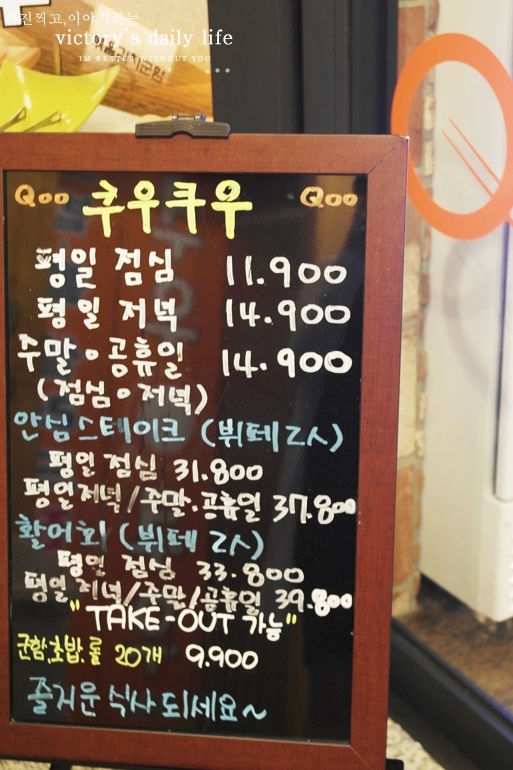 사진찍고,이야기하는
victory's daily life
IM BETTER WITHOUT YOU
Qoo 쿠우쿠우 Qoo
평일 점심 11.900
평일 저녁 14.900
주말。공휴일 14.900
(점심。저녁)
안심스테이크 (뷔페 2人)
평일 점심 31.800
평일저녁/주말.공휴일 37.800
활어회 (뷔페 2人)
평일 점심 33.800
평일 저녁/주말/공휴일 39.800
"TAKE-OUT 가능"
군함,초밥,롤 20개 9.900
즐거운 식사되세요~